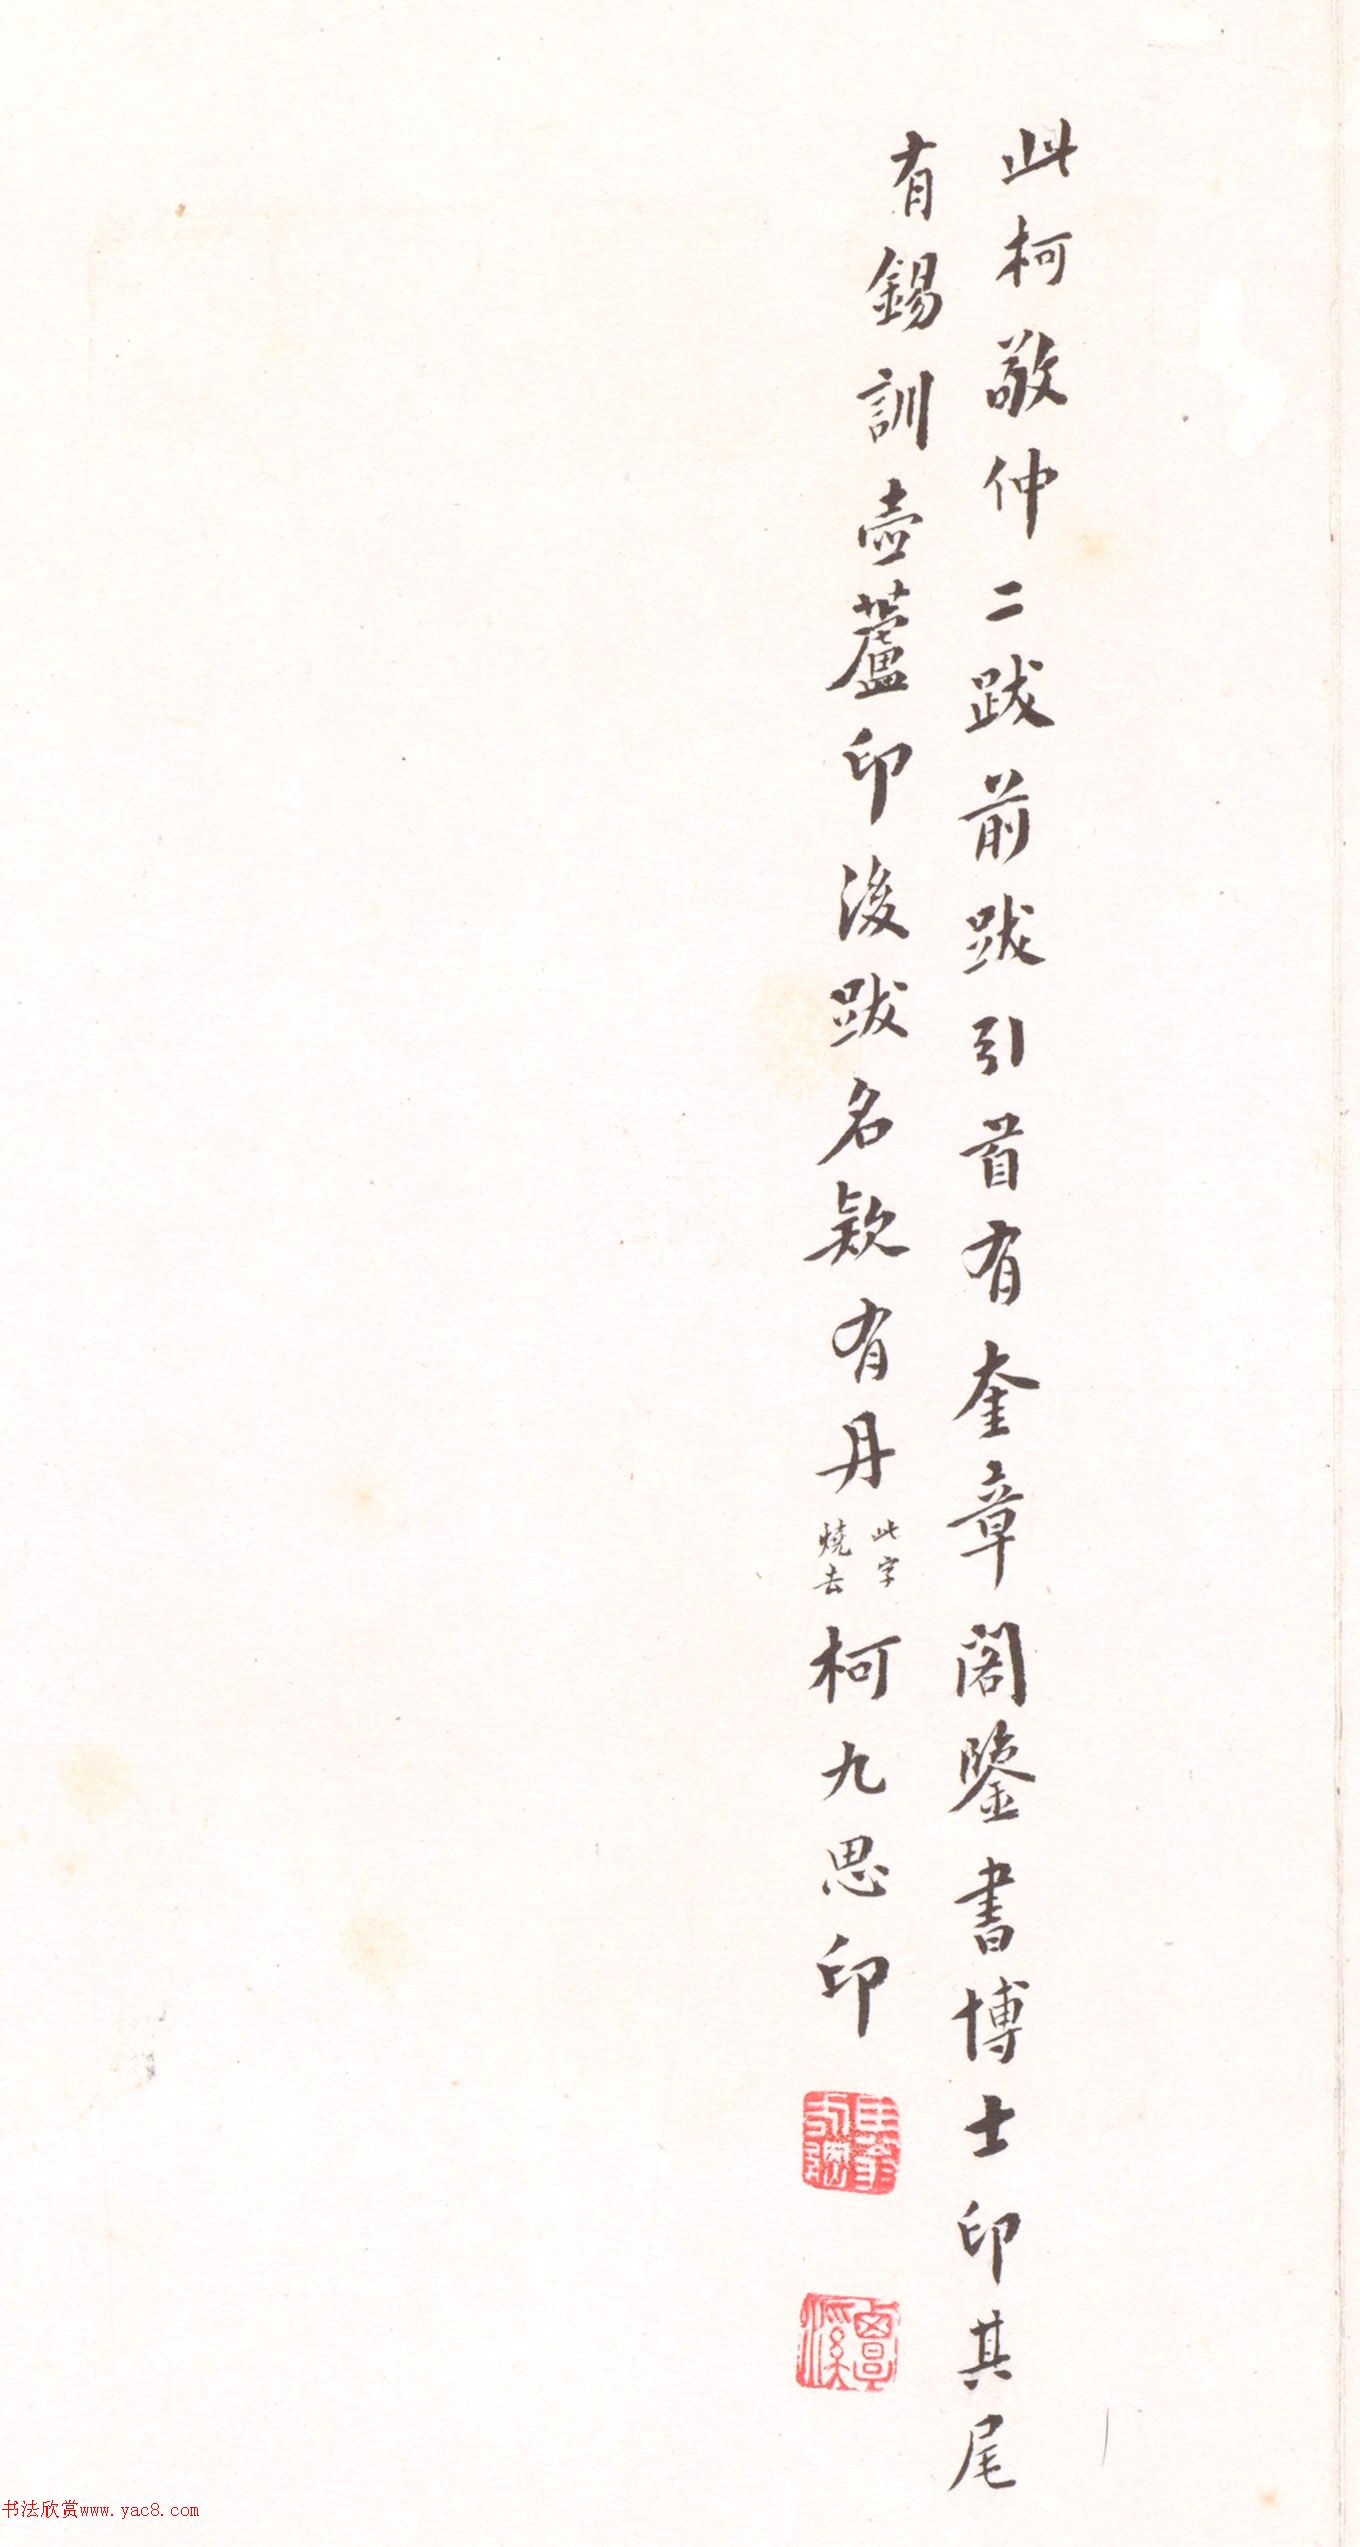 此柯敬仲二跋前跋引首有奎章閣鑒書博士印其尾
有錫訓壺蘆印後跋名欵有丹
此字
燒去
柯九思印
覃溪
书法欣赏www.yac8.com